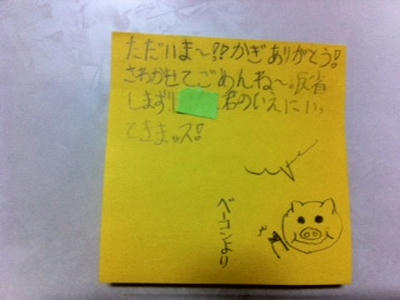 ただいま〜!!かぎありがとう!
さわがせてごめんね〜。反省
します!! 君のいえにいっ
てきまッス!
ベーコンより